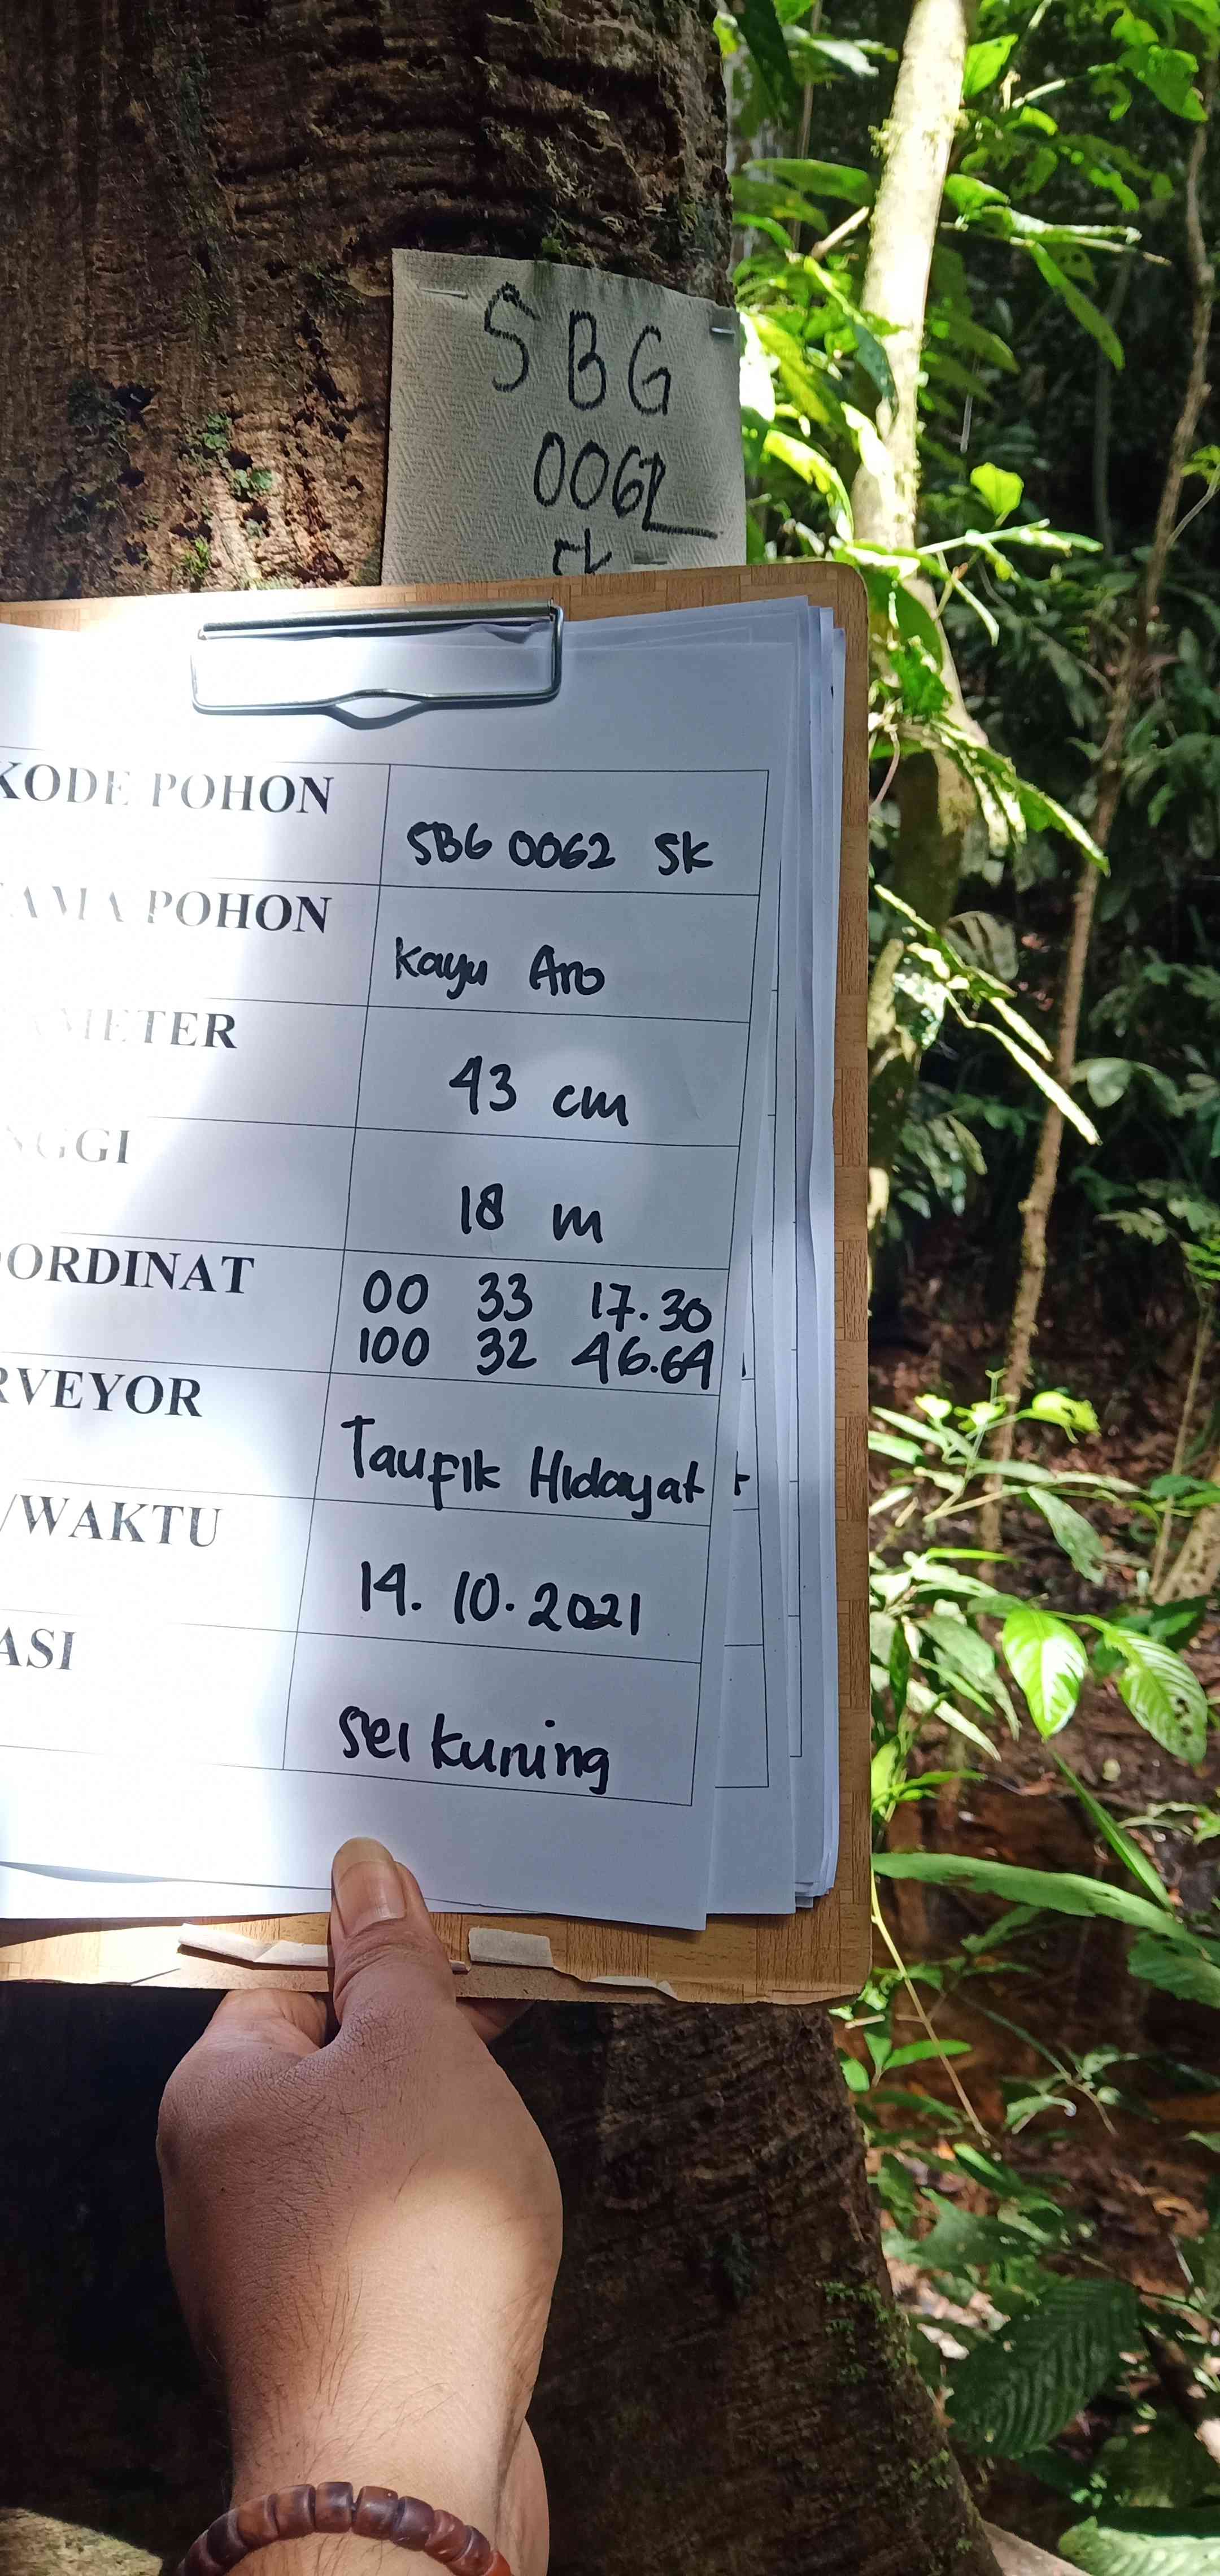 SBG
0062
SK
KODE POHON
SBG 0062 SK
AMA POHON
Kayu Aro
METER
43 cm
NGGI
18 m
OORDINAT
00 33 17.30
100 32 46.64
RVEYOR
Taufik Hidayat
/WAKTU
14.10.2021
ASI
Sei kuning